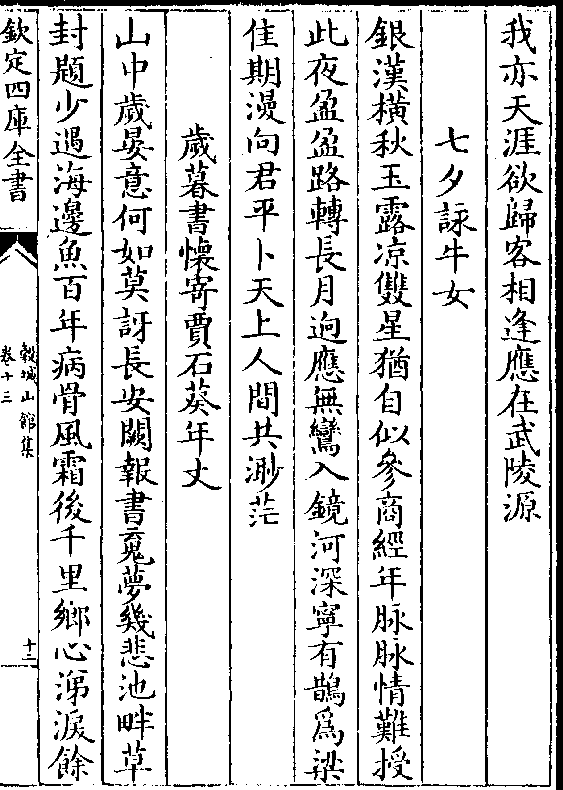 我亦天涯欲歸客相逢應在武陵源
七夕詠牛女
銀漢橫秋玉露凉雙星猶自似參商經年脉脉情難授
此夜盈盈路轉長月逈應無鸞入鏡河深寧有鵲為梁
佳期漫向君平卜天上人間共渺茫
歲暮書懷寄賈石葵年丈
山中歲晏意何如莫訝長安闕報書䰟夢幾悲池畔草
封題少遇海邊魚百年病骨風霜後千里鄉心涕淚餘
欽定四庫全書
糓城山館集
卷十三
十二